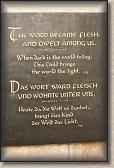 The Word became flesh,
and dwelt among us.
When dark is the world today,
This Child brings
the world the light.
Das Wort ward Fleisch
und wohnte unter uns.
Heute, da die Welt so dunkel,
bringt dies Kind
der Welt das Licht.